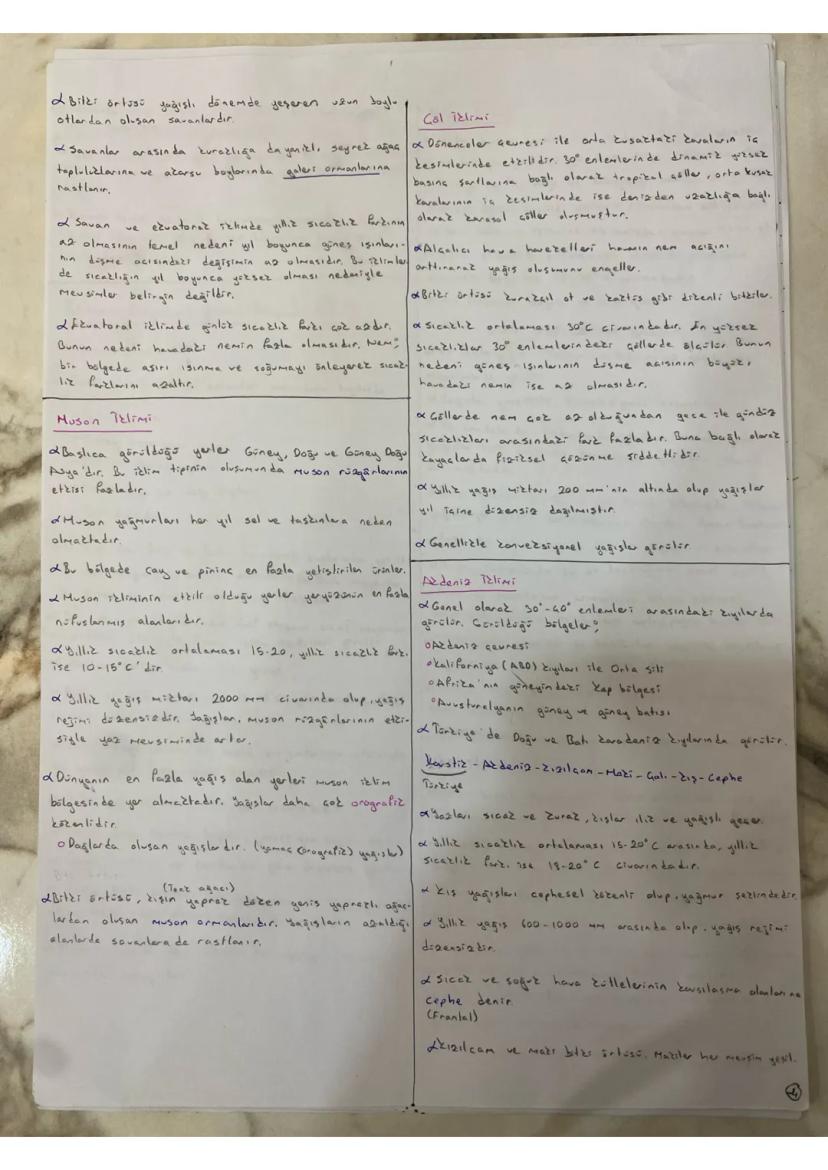 α Bitki örtüsü yağışlı dönemde yeşeren uzun boylu
otlardan oluşan savanlardır.
α Savanlar arasında kuraklığa dayanıklı, seyrek ağaç
topluluklarına ve akarsu boylarında galeri ormanlarına
rastlanır.
α Savan ve ekvatoral iklimde yıllık sıcaklık farkının
az olmasının temel nedeni yıl boyunca güneş ışınları-
nın düşme açısındaki değişimin az olmasıdır. Bu iklimler
de sıcaklığın yıl boyunca yüksek olması nedeniyle
mevsimler belirgin değildir.
α Ekvatoral iklimde günlük sıcaklık farkı çok azdır.
Bunun nedeni havadaki nemin fazla olmasıdır. Nem;
bir bölgede aşırı ısınma ve soğumayı önleyerek sıcak-
lık farklarını azaltır.
Muson İklimi
α Başlıca görüldüğü yerler Güney, Doğu ve Güney Doğu
Asya'dır. Bu iklim tipinin oluşumunda muson rüzgarlarının
etkisi fazladır.
α Muson yağmurları her yıl sel ve taşkınlara neden
olmaktadır.
α Bu bölgede çay ve pirinç en fazla yetiştirilen ürünler.
α Muson ikliminin etkili olduğu yerler yeryüzünün en fazla
nüfuslanmış alanlarıdır.
α Yıllık sıcaklık ortalaması 15-20, yıllık sıcaklık farkı
ise 10-15°C'dir.
α Yıllık yağış miktarı 2000 mm civarında olup, yağış
rejimi düzensizdir. Yağışları, muson rüzgarlarının etki-
siyle yaz mevsiminde artar.
α Dünyanın en fazla yağış alan yerleri muson iklim
bölgesinde yer almaktadır. Yağışlar daha çok orografik
kökenlidir.
o Dağlarda oluşan yağışlardır. (yamaç (orografik) yağışlar)
(Teak ağacı)
α Bitki örtüsü, kışın yaprak döken geniş yapraklı ağaç-
lardan oluşan muson ormanlarıdır. Yağışların azaldığı
alanlarda savanlara da rastlanır.
Çöl İklimi
α Dönenceler çevresi ile orta kuşaktaki karaların iç
kesimlerinde etkilidir. 30° enlemlerinde dinamik yüksek
basınç şartlarına bağlı olarak tropikal çöller, orta kuşak
karalarının iç kesimlerinde ise denizden uzaklığa bağlı
olarak karasal çöller oluşmuştur.
α Alçalıcı hava hareketleri havanın nem açığını
arttırarak yağış oluşumunu engeller.
α Bitki örtüsü kurakçıl ot ve kaktüs gibi dikenli bitkiler.
α Sıcaklık ortalaması 30°C civarındadır. En yüksek
sıcaklıklar 30° enlemlerindeki çöllerde ölçülür. Bunun
nedeni güneş ışınlarının düşme açısının büyük,
havadaki nemin ise az olmasıdır.
α Çöllerde nem çok az olduğundan gece ile gündüz
sıcaklıkları arasındaki fark fazladır. Buna bağlı olarak
kayaçlarda fiziksel çözünme şiddetlidir.
α Yıllık yağış miktarı 200 mm'nin altında olup yağışlar
yıl içine düzensiz dağılmıştır.
α Genellikle konveksiyonel yağışlar görülür.
Akdeniz İklimi
α Genel olarak 30°-40° enlemleri arasındaki kıyılarda
görülür. Görüldüğü bölgeler;
o Akdeniz çevresi
o Kaliforniya (ABD) kıyıları ile Orta Şili
o Afrika'nın güneyindeki Kap bölgesi
o Avusturalyanın güney ve güney batısı
α Türkiye'de Doğu ve Batı Karadeniz kıyılarında görülür.
Karstik - Akdeniz - Kızılçam - Maki - Gali - Kış - Cephe
Türkiye
α Yazları sıcak ve kurak, kışlar ılık ve yağışlı geçer.
α Yıllık sıcaklık ortalaması 15-20°C arasında, yıllık
sıcaklık farkı ise 18-20°C civarındadır.
α Kış yağışları cephesel kökenli olup, yağmur şeklindedir.
α Yıllık yağış 600-1000 mm arasında olup, yağış rejimi
düzensizdir.
α Sıcak ve soğuk hava kütlelerinin karşılaşma alanlarına
cephe denir.
(Frontal)
α Kızılçam ve maki bitki örtüsü. Makiler her mevsim yeşil.